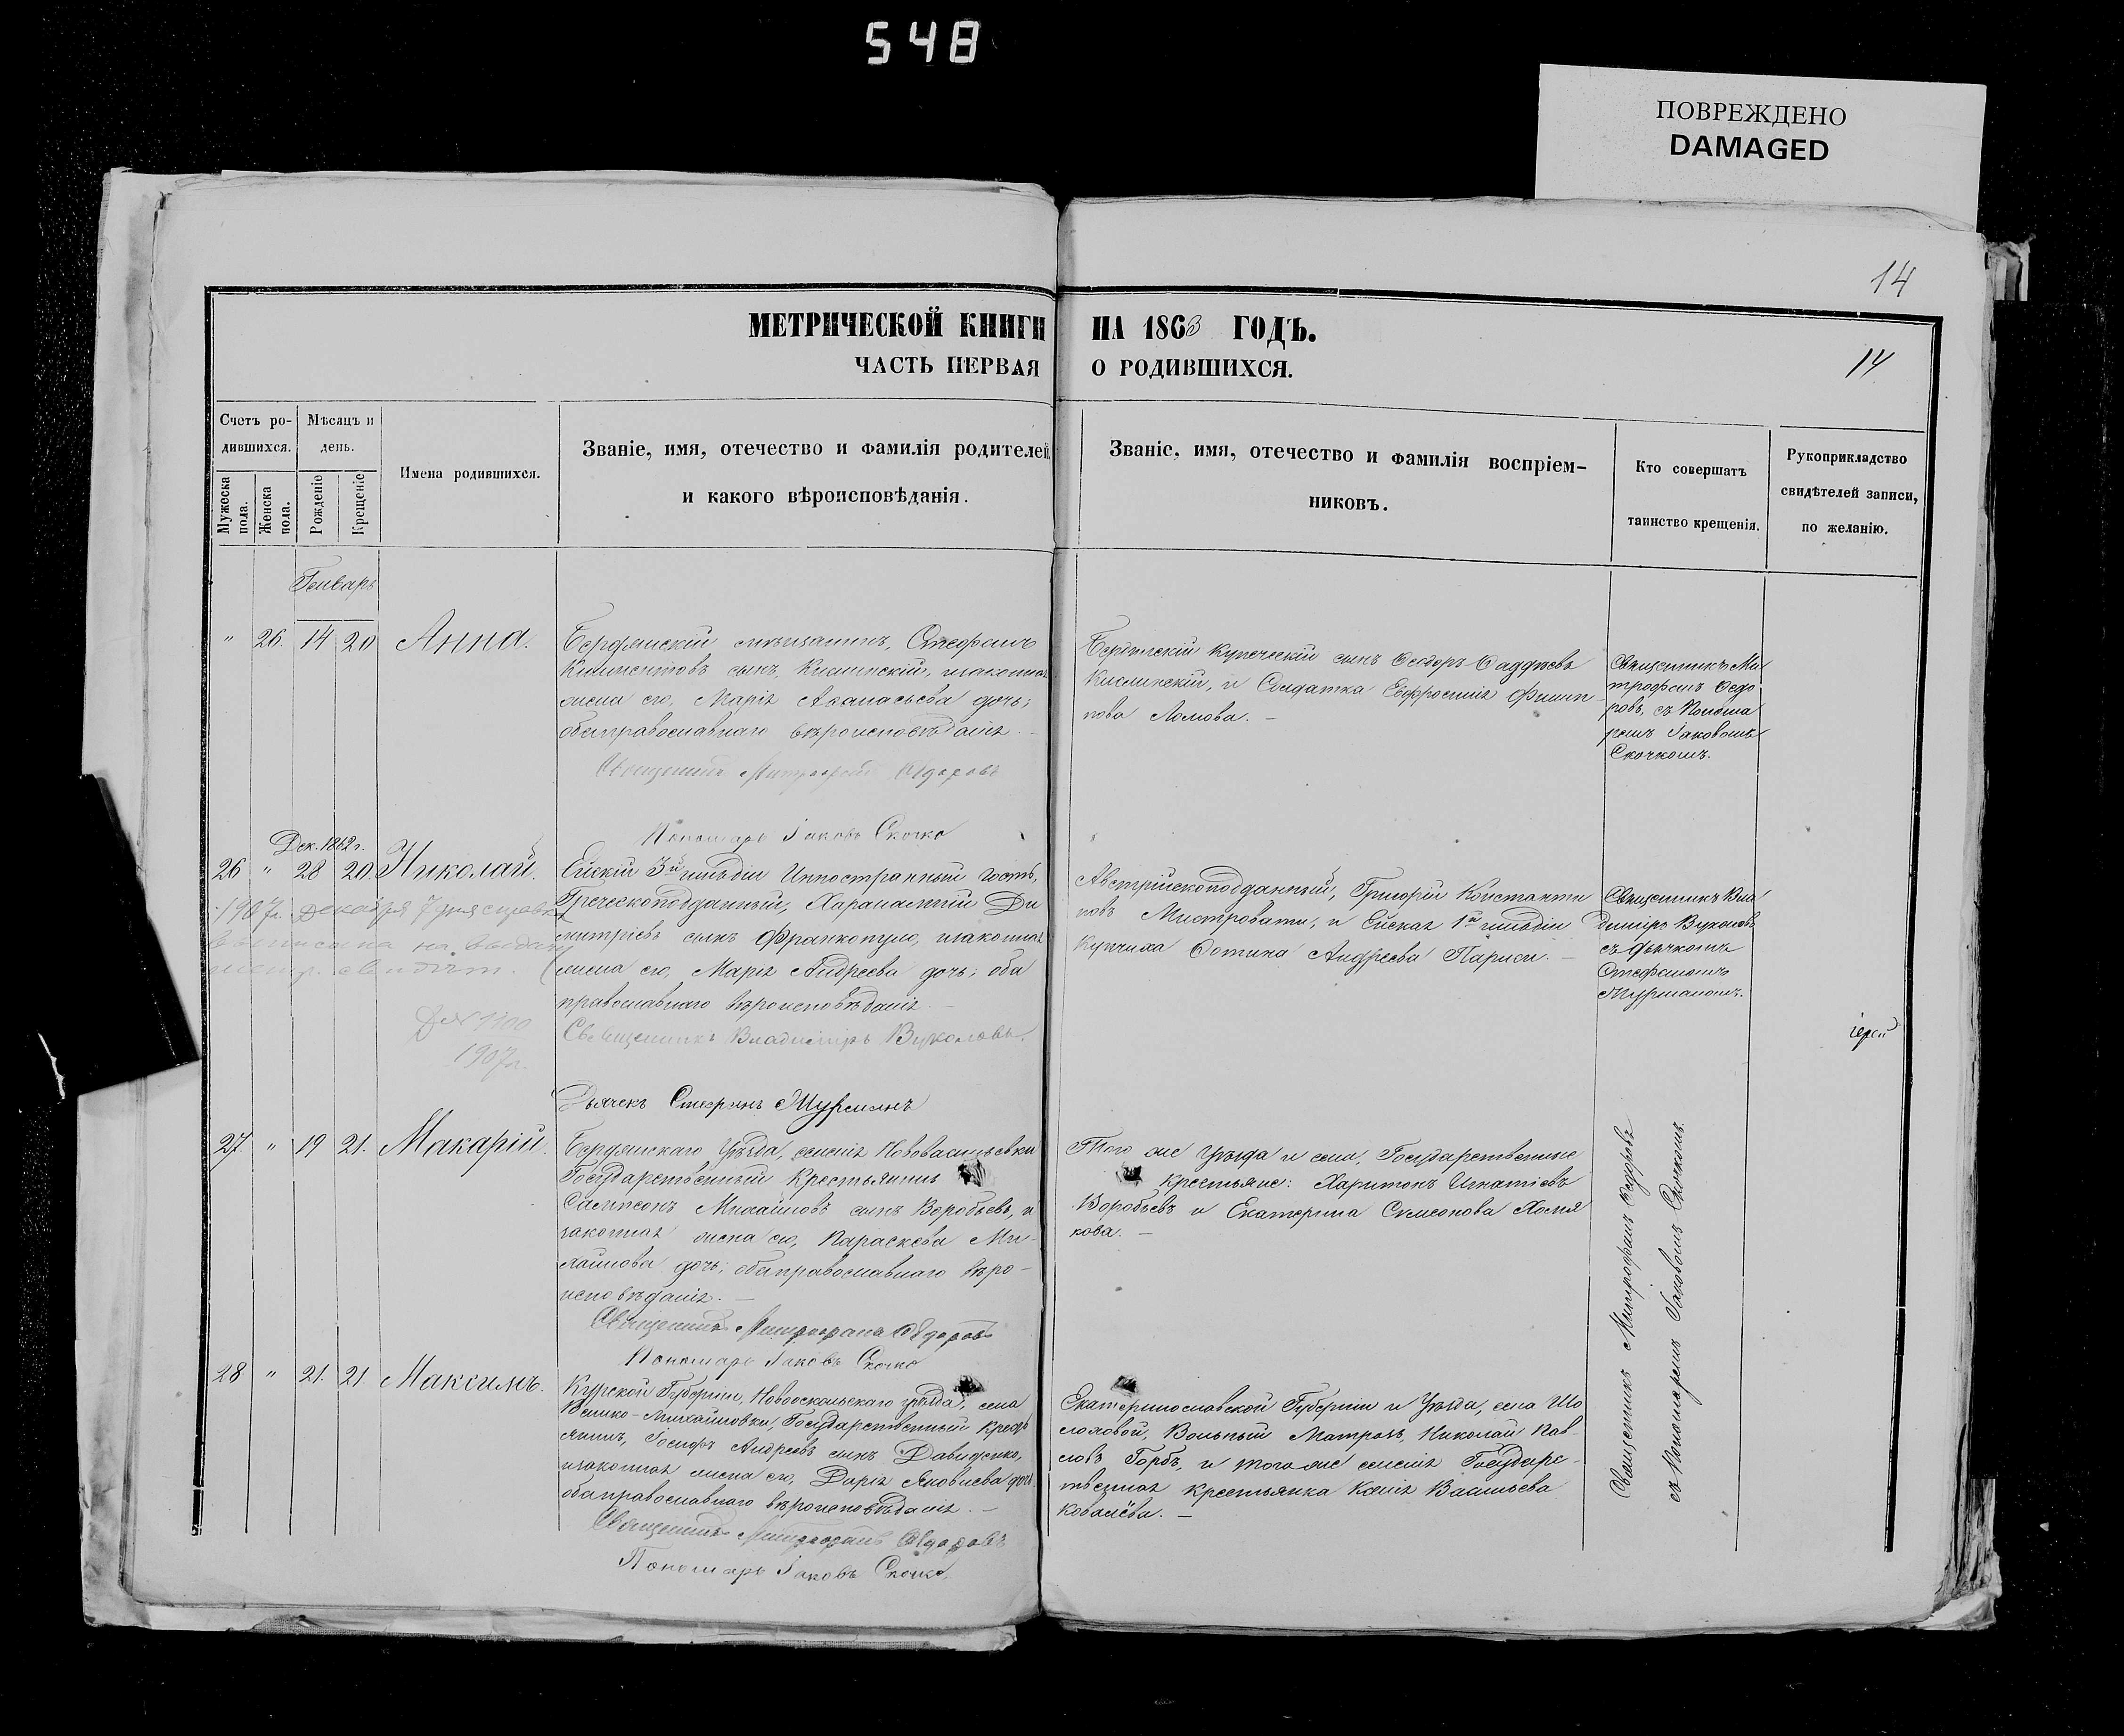 548
ПОВРЕЖДЕНО
DAMAGED
14
МЕТРИЧЕСКОЙ КНИГИ НА 1863 ГОДЪ.
ЧАСТЬ ПЕРВАЯ О РОДИВШИХСЯ.
14
Счетъ ро-
дившихся.
Мужеска
пола.
Женска
пола.
Мѣсяцъ и
день.
Рожденіе
Крещеніе
Имена родившихся.
Званіе, имя, отечество и фамилія родителей
и какого вѣроисповѣданія.
Званіе, имя, отечество и фамилія воспріем-
никовъ.
Кто совершатъ
таинство крещенія.
Рукоприкладство
свидѣтелей записи,
по желанію.
Генварь
" 26. 14 20 Анна.
Бердянскій мѣщанинъ, Стефанъ
Климентовъ сынъ, и законная
жена его, Марія Аѳанасьева дочь;
оба православнаго вѣроисповѣданія. -
Священникъ Митрофанъ Ѳедоровъ
Пономарь Іаковъ Скочко
Бердянскій купеческій сынъ Ѳеодоръ Ѳаддѣевъ
и Солдатка Евфросинія Филип
пова Ломова. -
Священникъ Ми
трофанъ Ѳедо
ровъ, съ Понома
ремъ Іаковомъ
Скочкомъ.
Дек. 1862 г.
26 " 28 20 Николай.
Ейскій 3й гильдіи Инностранный гость,
Греческоподданный, Харалампій Ди
митріевъ сынъ Франкопуло, и законная
жена его, Марія Андреева дочь; оба
православнаго вѣроисповѣданія. -
Священникъ Владиміръ Вуколовъ.
Дьячекъ Стефанъ Мурманъ
1907 г. Декабря 7 дня справка
выписана на выдачу
метр. свидѣт.
Д № 1100
1907 г.
Австрійскоподданный, Григорій Константи
новъ Мистровати, и Ейская 1й гильдіи
Купчиха Ѳотина Андреева Париси. -
Священникъ Вла
диміръ Вуколовъ
съ дьячкомъ
Стефаномъ
Мурманомъ.
іерей
27. " 19 21. Макарій.
Бердянскаго Уѣзда, селенія Нововасильевки
Государственный Крестьянинъ
Сампсонъ Михайловъ сынъ Воробьевъ, и
законная жена его, Параскева Ми-
хайлова дочь; оба православнаго вѣро-
исповѣданія. -
Священникъ Митрофанъ Ѳедоровъ
Пономарь Іаковъ Скочко
Того же Уѣзда и села, Государственные
Крестьяне: Харитонъ Игнатіевъ
Воробьевъ и Екатерина Симеонова Хомя
кова. -
28 " 21. 21 Максимъ.
Курской Губерніи, Новооскольскаго уѣзда, села
Велико-Михайловки, Государственный Крестъ
янинъ, Іосифъ Андреевъ сынъ Давиденко,
и законная жена его, Дарія Яковлева дочь
оба православнаго вѣроисповѣданія. -
Священникъ Митрофанъ Ѳедоровъ
Пономарь Іаковъ Скочко.
Екатеринославской Губерніи и Уѣзда, села Шо
лоховой, Вольный Матрозъ, Николай Пав-
ловъ Горбъ, и того же селенія Государс-
твенная крестьянка Ксенія Васильева
Ковалёва. -
Священникъ Митрофанъ Ѳедоровъ
съ Пономаремъ Іаковомъ Скочкомъ.